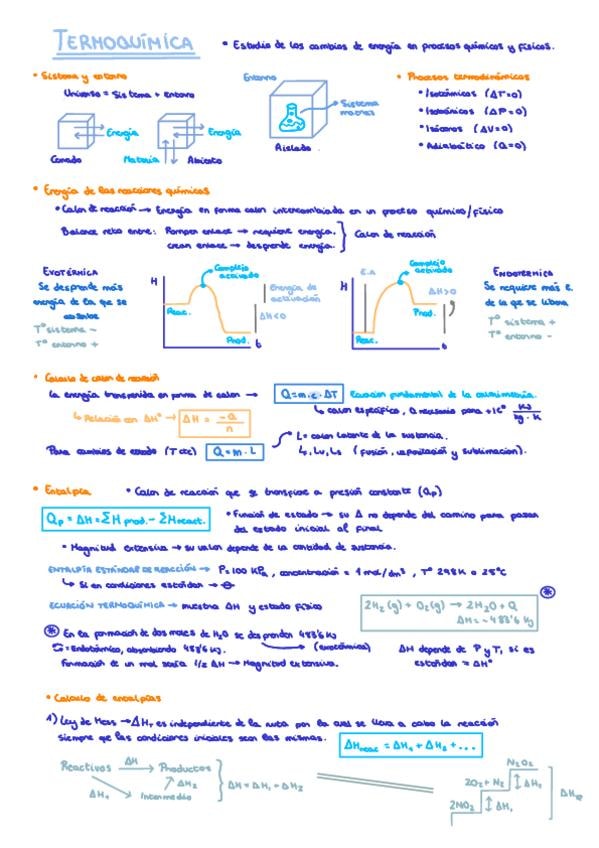 TERMOQUÍMICA • Estudio de los cambios de energía en procesos químicos y físicos.
• Sistema y entorno
Universo = Sistema + entorno
Energía
Cerrado
Energía
Materia
Abierto
Entorno
Sistema
Aislado
• Procesos termodinámicos
• Isotérmicos (ΔT=0)
• Isobáricos (ΔP=0)
• Isócoros (ΔV=0)
• Adiabático (Q=0)
• Energía de las reacciones químicas
• Calor de reacción → Energía en forma calor intercambiada en un proceso químico/físico
Balance neto entre: Romper enlace → requiere energía.
crear enlace → desprende energía. } Calor de reacción
EXOTÉRMICA
Se desprende más
energía de la que se
absorbe
Tº sistema -
Tº entorno +
H
Complejo
activado
Energía de
activación
ΔH<0
Reac.
Prod.
t
H
E.A
Complejo
activado
ΔH>0
Prod.
Reac.
t
ENDOTÉRMICA
Se requiere más E.
de la que se libera
Tº sistema +
Tº entorno -
• Cálculo de calor de reacción
La energía transferida en forma de calor → Q=m.c.ΔT Ecuación fundamental de la calorimetría.
↳ Relación con ΔHº → ΔH = -Q/n
↳ calor específico, Q necesario para +1ºC KJ/kg·K
Para cambios de estado (T cte) Q=m.L
L= calor latente de la sustancia.
Lf, Lv, Ls (fusión, vaporización y sublimación).
• Entalpía • Calor de reacción que se transfiere a presión constante (Qp)
Qp = ΔH = ΣH prod. - ΣH react.
• Función de estado → su Δ no depende del camino para pasar
del estado inicial al final
• Magnitud extensiva → su valor depende de la cantidad de sustancia.
ENTALPÍA ESTÁNDAR DE REACCIÓN → P=100 KPa, concentración = 1 mol/dm³, Tº 298K o 25ºC
↳ Si en condiciones estándar → ⊖
ECUACIÓN TERMOQUÍMICA → muestra ΔH y estado físico
2H₂(g) + O₂(g) → 2H₂O + Q
ΔH = -483'6 KJ
*
* En la formación de dos moles de H₂O se desprenden 483'6 KJ.
= Endotérmica, absorbiendo 483'6 KJ. (exotérmica)
Formación de un mol sería 1/2 ΔH → Magnitud extensiva.
ΔH depende de P y T, si es
estándar = ΔHº
• Cálculo de entalpías
1) Ley de Hess → ΔHr es independiente de la ruta por la cual se lleva a cabo la reacción
siempre que las condiciones iniciales sean las mismas.
ΔH reac = ΔH₁ + ΔH₂ + ...
Reactivos ΔH Productos
ΔH₁ Intermedio ΔH₂
ΔH = ΔH₁ + ΔH₂
N₂O₂
2O₂ + N₂ ΔH₂
2NO₂ ΔH₁